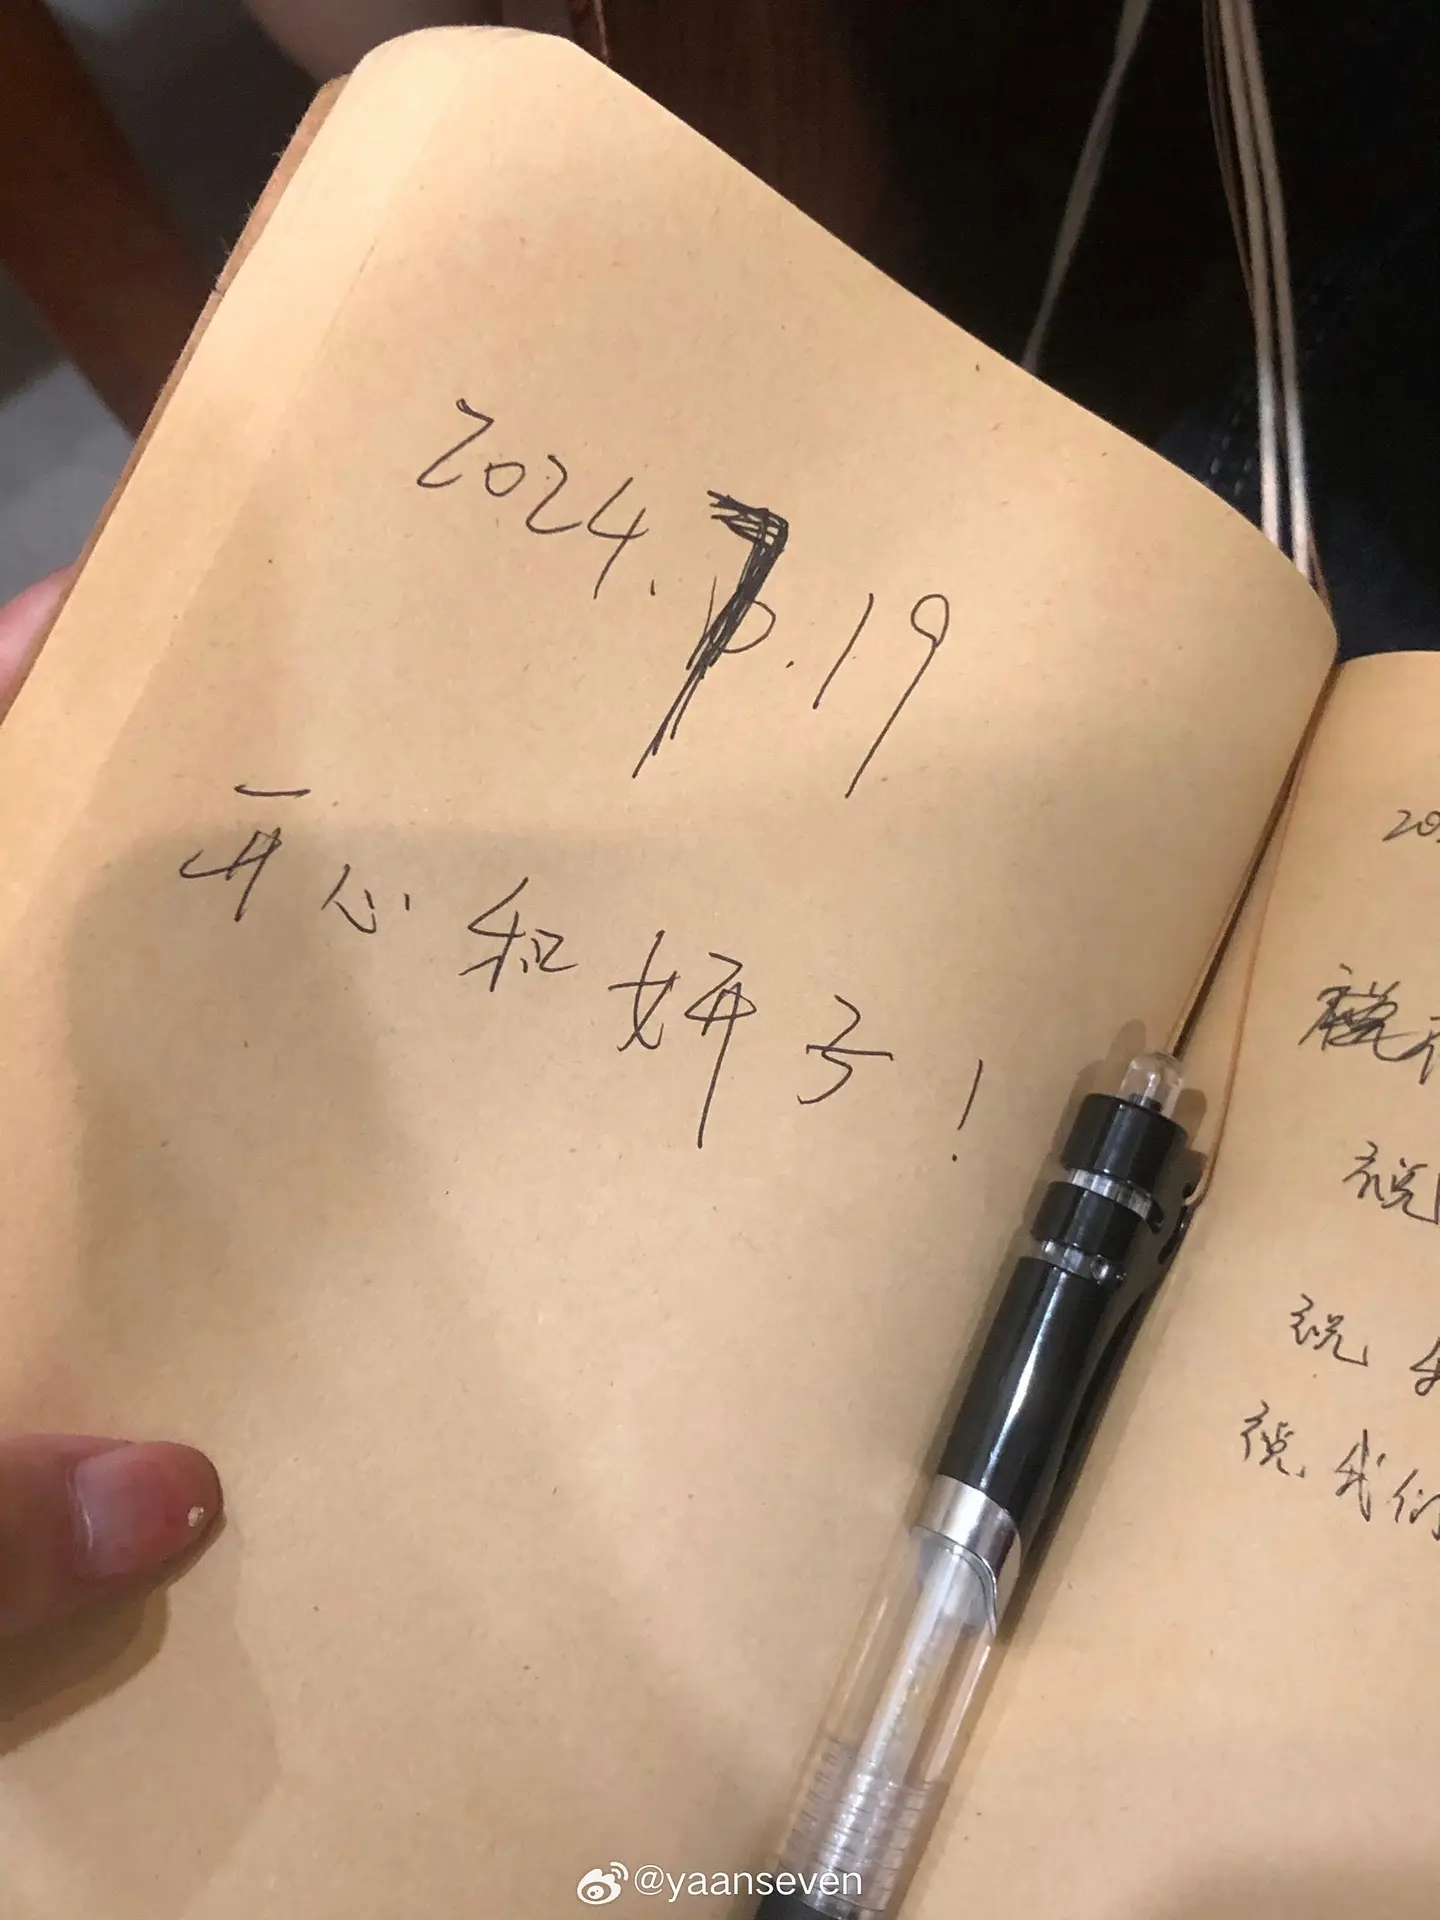 2024.7.19
开心和妍子!
祝
祝
祝我们
@yaanseven